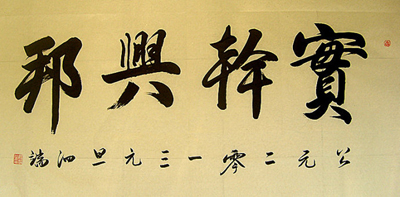 實幹興邦
公元二零一三元旦泗端